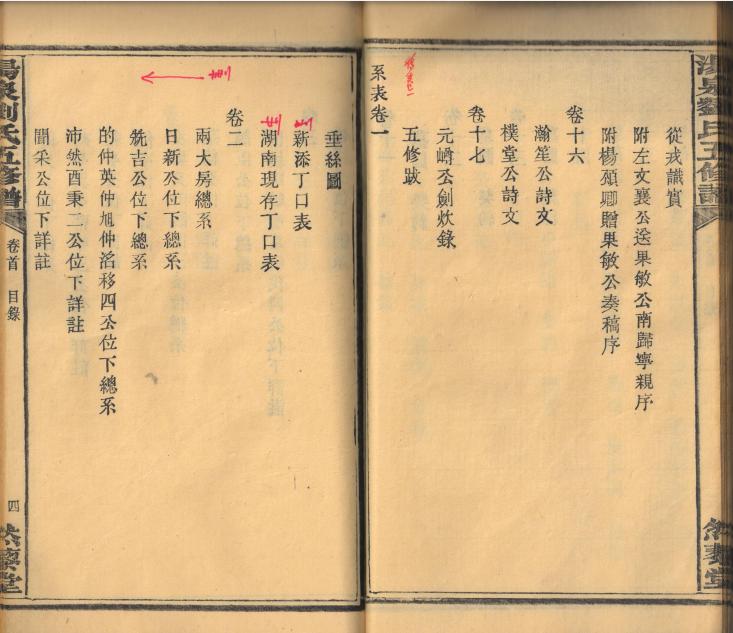 湯泉劉氏五修譜
然藜堂
從戎識實
附左文襄公送果敏公南歸寧親序
附楊碩卿贈果敏公奏稿序
卷十六
瀚笙公詩文
樸堂公詩文
卷十七
元崎公劍炊錄
五修跋
系表卷一
垂絲圖
刪
新添丁口表
刪
湖南現存丁口表
卷二
刪
兩大房總系
日新公位下總系
吉公位下總系
的仲英仲旭仲滔移四公位下總系
沛然酉秉二公位下詳註
聞采公位下詳註
湯泉劉氏五修譜
卷首 目錄
四
然藜堂